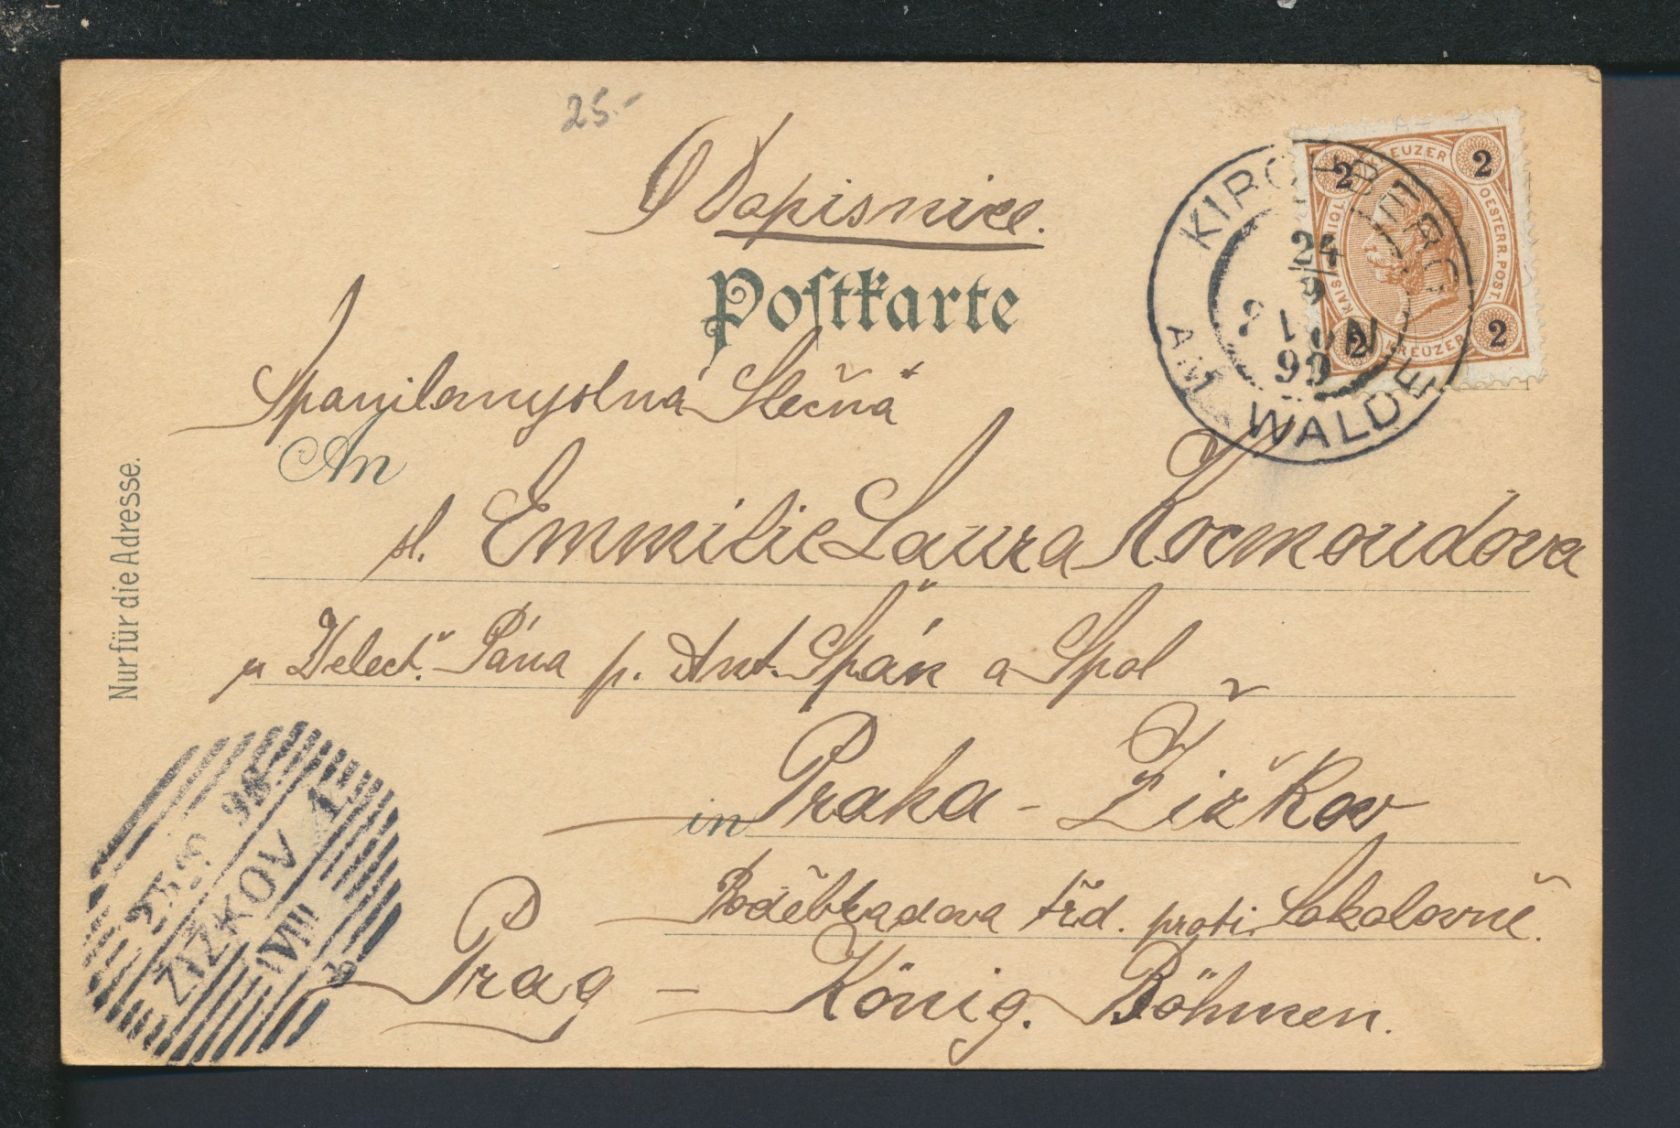 25.-
Dopisnice.
Postkarte
Spanilomyslná Slečna
An
sl. Emmilie Laura Kocmoudova
Pána p. Ant. Špán a Spol
in Praha - Žižkov
Poděbradova třd. proti Sokolovně.
Prag - König. Böhmen.
Nur für die Adresse.
KIRCHBERG
AM WALDE
24
9
99
2 KREUZER 2
KAIS. KÖNIGL. OESTERR. POST
2 KREUZER 2
ŽIŽKOV 1
VIII